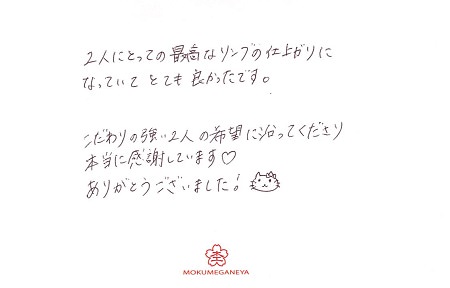 2人にとっての最高なリングの仕上がりに
なっていて とても良かったです。
こだわりの強い2人の希望に沿ってくださり
本当に感謝しています♡
ありがとうございました!
杢
MOKUMEGANEYA